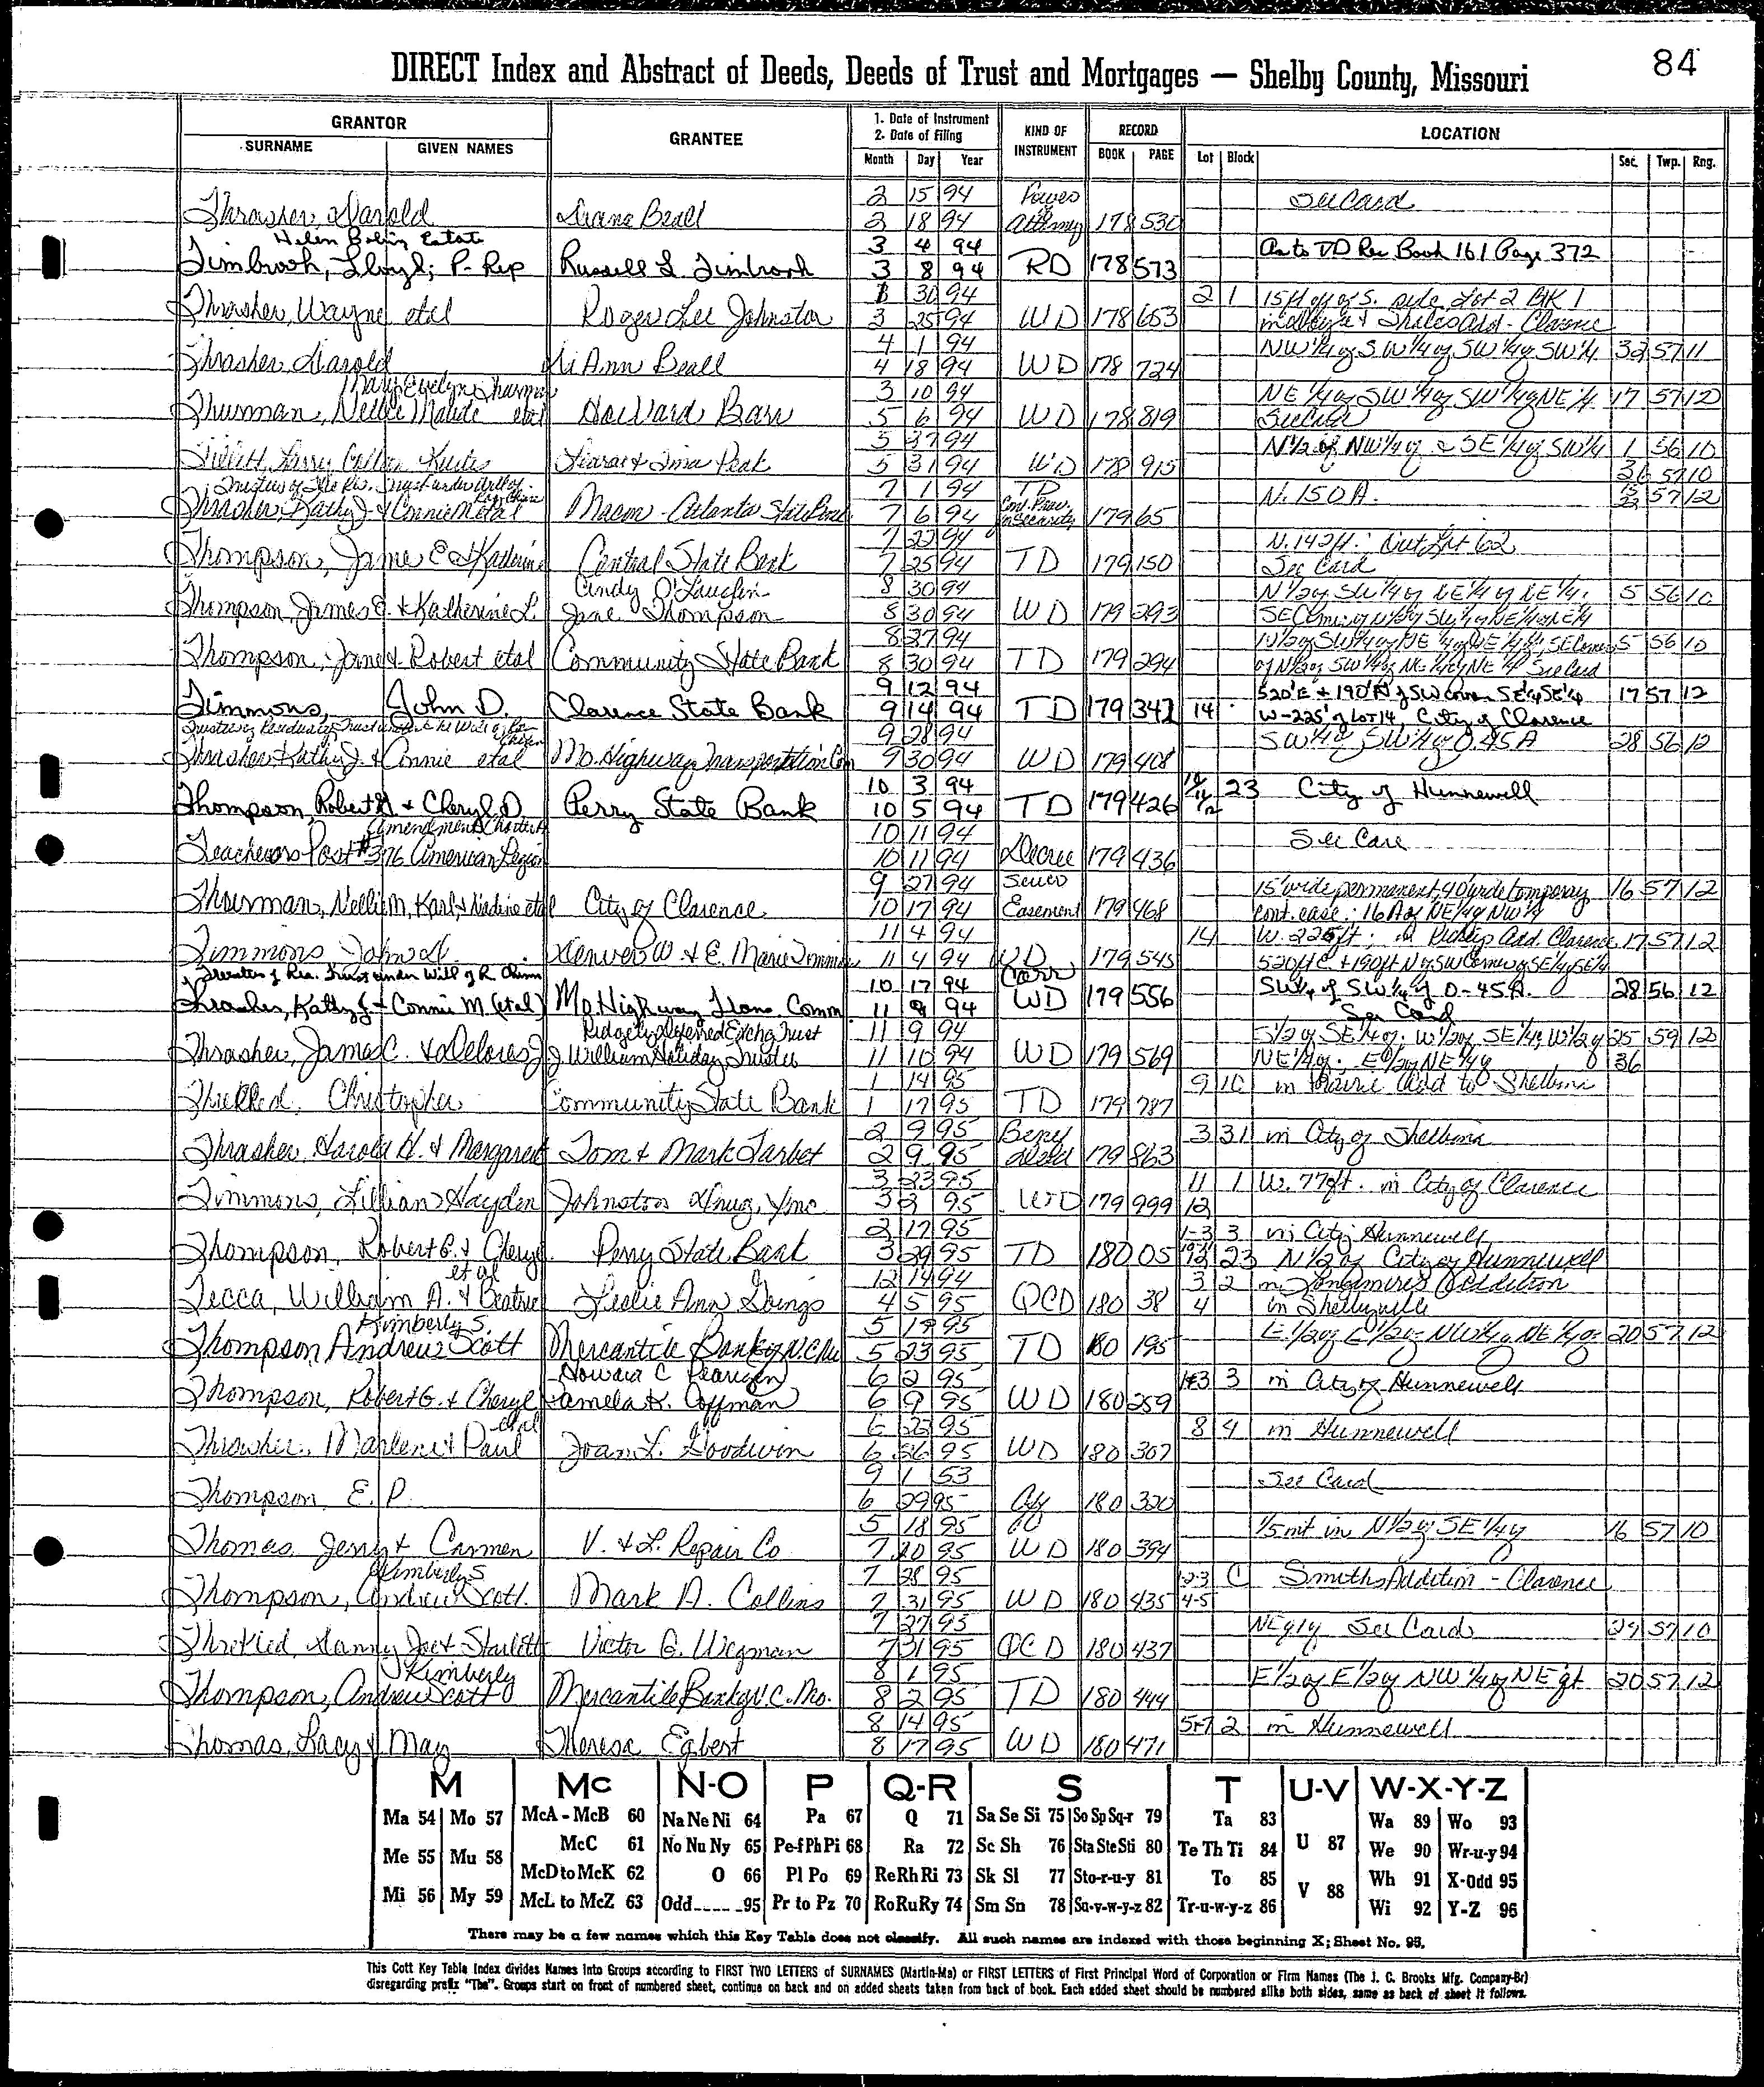 84
DIRECT Index and Abstract of Deeds, Deeds of Trust and Mortgages — Shelby County, Missouri
GRANTOR GRANTEE 1. Date of Instrument 2. Date of Filing KIND OF INSTRUMENT RECORD LOCATION
SURNAME GIVEN NAMES Month Day Year BOOK PAGE Lot Block Sec. Twp. Rng.
2 15 94 Power See Card
Thrasher, Harold Beall 2 18 94 Attorney 178 530
Helen Estate 3 4 94 As to TD Rec Book 161 Page 372
Timbrook, Lloyd; P. Rep Russell L. Timbrook 3 8 94 RD 178 573
31 94 2 1 15 ft off of S. side Lot 2 Blk 1
Thrasher, Wayne etal Roger Lee Johnston 3 25 94 WD 178 653 Add - Clarence
4 1 94 NW 1/4 of SW 1/4 of SW 1/4 of SW 1/4 32 57 11
Thrasher Harold Ann Beall 4 18 94 WD 178 724
Mary Evelyn Thurman 3 10 94 NE 1/4 of SW 1/4 of SW 1/4 of NE 1/4 17 57 12
Thurman, Nellie etal Howard Barr 5 6 94 WD 178 819 See Card
94 N 1/2 of NW 1/4 of SE 1/4 of SW 1/4 1 56 10
Larry Tina Peak 5 31 94 WD 178 915 36 57 10
7 1 94 TD N. 150 A. 57 12
Thrasher, Kathy J. & Connie M etal Macon - Atlanta State Bank 7 6 94 179 65
7 22 94 N. 142 ft. Out Lot 62
Thompson, Jame E & Katherine Central State Bank 7 25 94 TD 179 150 See Card
Cindy O'Laughlin 8 30 94 N 1/2 of SW 1/4 of NE 1/4 of NE 1/4. 5 56 10
Thompson, James E. & Katherine L. Jane Thompson 8 30 94 WD 179 293
8 27 94 5 56 10
Thompson, Jane & Robert etal Community State Bank 8 30 94 TD 179 294 of N 1/2 of SW 1/4 of NE 1/4 of NE 1/4 See Card
9 12 94 520' E + 190' N of SW Corner SE 1/4 SE 1/4 17 57 12
Timmons, John D. Clarence State Bank 9 14 94 TD 179 342 14 W-225' of Lot 14, City of Clarence
9 28 94 SW 1/4 of SW 1/4 of 0.45 A 28 56 12
Thrasher, Kathy J. & Connie etal Mo. Highway Transportation Com 9 30 94 WD 179 408
10 3 94 23 City of Hunnewell
Thompson, Robert G. & Cheryl D. Perry State Bank 10 5 94 TD 179 426
Amendment 10 11 94 See Card
Post #376 American Legion 10 11 94 Decree 179 436
9 27 94 Sewer 15' wide permanent, 40' wide temporary 16 57 12
Thurman, Nellie M, Karl & Nadine etal City of Clarence 10 17 94 Easement 179 468 const. ease: 16 A of NE 1/4 of NW 1/4
11 4 94 14 W. 225 ft; Add. Clarence 17 57 12
Timmons John D. Denver W. & E. Marie Timmons 11 4 94 WD 179 545 520 ft E + 190 ft N of SW Corner of SE 1/4 of SE 1/4
Trustees of Res. Trust under Will of R. 10 17 94 Corr SW 1/4 of SW 1/4 of 0-45 A. 28 56 12
Thrasher, Kathy J. & Connie M. (etal) Mo. Highway Trans. Comm. 11 8 94 WD 179 556 See Card
Ridgely Deferred Exchg Trust 11 9 94 E 1/2 of SE 1/4 of; W 1/2 of SE 1/4; W 1/2 of 25 59 12
Thrasher, James C. & Delores J. J. William Holiday, Trustee 11 10 94 WD 179 569 NE 1/4 of; E 1/2 of NE 1/4 of 36
1 14 95 9 10 in Prairie Add to Shelbina
Christopher Community State Bank 1 17 95 TD 179 787
2 9 95 Benef 3 31 in City of Shelbina
Thrasher, Harold H. & Margaret Tom & Mark Tarbet 2 9 95 Deed 179 863
3 23 95 11 1 W. 77 ft. in City of Clarence
Timmons, Lillian Hayden Johnston Drug, Inc. 3 95 WD 179 999 12
2 17 95 1-3 3 in City Hunnewell
Thompson, Robert G. & Cheryl Perry State Bank 3 29 95 TD 180 05 23 N 1/2 of City of Hunnewell
et al 12 14 94 3 2 in Addition
Tecca, William A. & Beatrice Leslie Ann Goings 4 5 95 QCD 180 38 4 in Shelbyville
Kimberly S. 5 19 95 E. 1/2 of E 1/2 of NW 1/4 of NE 1/4 of 20 57 12
Thompson Andrew Scott Mercantile Bank of N.C. Mo 5 23 95 TD 180 195
Howard C 6 2 95 1-3 3 in City of Hunnewell
Thompson, Robert G. & Cheryl Pamela K. Coffman 6 9 95 WD 180 259
etal 6 95 8 4 in Hunnewell
Thrasher, Marlene & Paul Joan L. Goodwin 6 26 95 WD 180 307
9 1 53 See Card
Thompson E. P. 6 29 95 Aff 180 320
5 18 95 1/5 int in N 1/2 of SE 1/4 of 16 57 10
Thomas Jerry & Carmen V. & L. Repair Co 7 20 95 WD 180 394
Kimberly S 7 28 95 1-2-3 C Smiths Addition - Clarence
Thompson, Andrew Scott. Mark A. Collins 7 31 95 WD 180 435 4-5
7 27 95 NE 1/4 See Card 29 57 10
Threlkeld, Danny Joe & Starlett Victor G. Wiegman 7 31 95 QCD 180 437
Kimberly 8 1 95 E 1/2 of E 1/2 of NW 1/4 of NE qt 20 57 12
Thompson, Andrew Scott Mercantile Bank of N.C. Mo. 8 2 95 TD 180 444
8 14 95 5-7 2 in Hunnewell
Thomas, Lacy & May Theresa Egbert 8 17 95 WD 180 471
M Mc N-O P Q-R S T U-V W-X-Y-Z
Ma 54 Mo 57 McA - McB 60 Na Ne Ni 64 Pa 67 Q 71 Sa Se Si 75 So Sp Sq-r 79 Ta 83 Wa 89 Wo 93
McC 61 No Nu Ny 65 Pe-f Ph Pi 68 Ra 72 Sc Sh 76 Sta Ste Sti 80 Te Th Ti 84 U 87
Me 55 Mu 58 We 90 Wr-u-y 94
McD to McK 62 O 66 Pl Po 69 Re Rh Ri 73 Sk Sl 77 Sto-r-u-y 81 To 85 Wh 91 X-Odd 95
Mi 56 My 59 McL to McZ 63 Odd ---- 95 Pr to Pz 70 Ro Ru Ry 74 Sm Sn 78 Su-v-w-y-z 82 Tr-u-w-y-z 86 V 88 Wi 92 Y-Z 96
There may be a few names which this Key Table does not classify. All such names are indexed with those beginning X; Sheet No. 95.
This Cott Key Table Index divides Names into Groups according to FIRST TWO LETTERS of SURNAMES (Martin-Ma) or FIRST LETTERS of First Principal Word of Corporation or Firm Names (The J. C. Brooks Mfg. Company-Br)
disregarding prefix "The". Groups start on front of numbered sheet, continue on back and on added sheets taken from back of book. Each added sheet should be numbered alike both sides, same as back of sheet it follows.